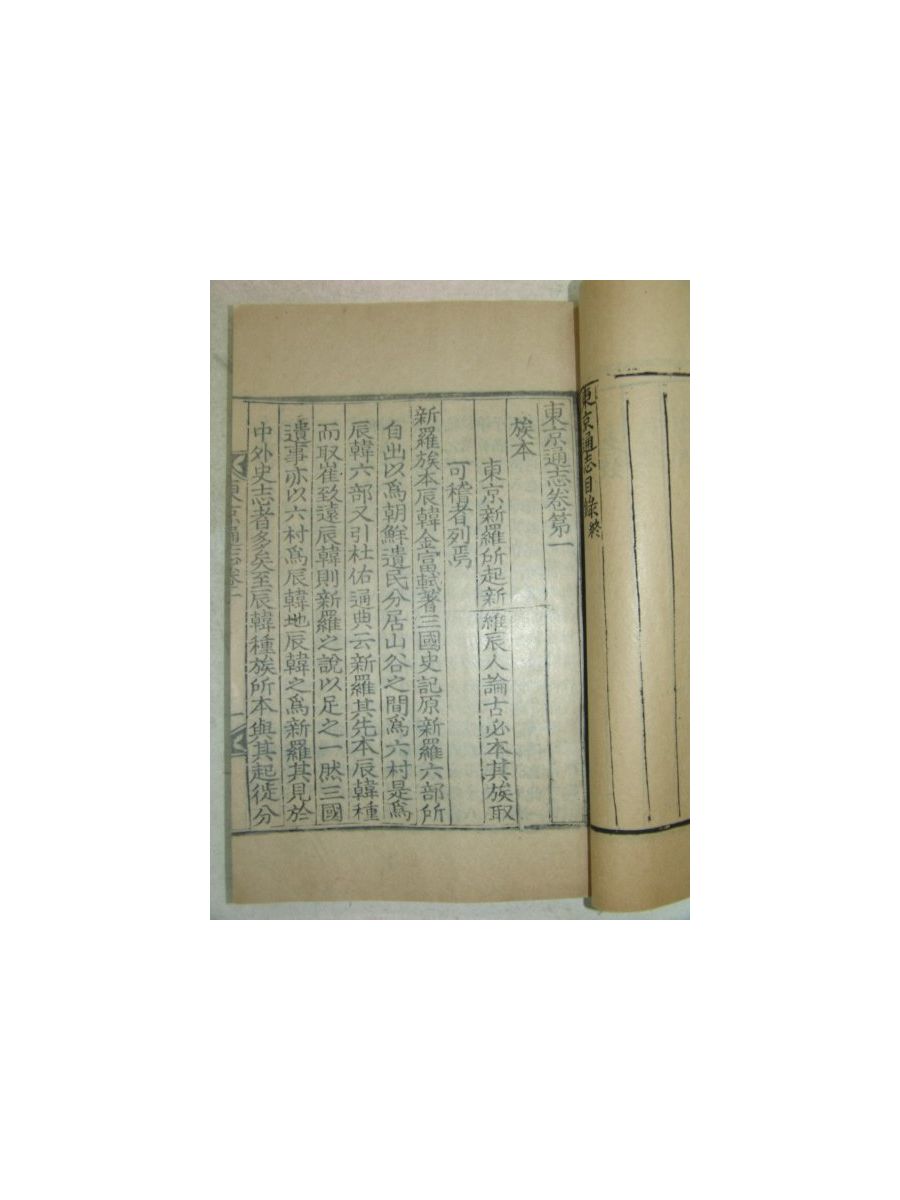 東京通志目錄終
東京通志卷第一
族本
東京新羅所起新維辰人論古必本其族取
可稽者列焉
新羅族本辰韓金富軾著三國史記原新羅六部所
自出以爲朝鮮遺民分居山谷之間爲六村是爲
辰韓六部又引杜佑通典云新羅其先本辰韓種
而取崔致遠辰韓則新羅之說以足之一然三國
遺事亦以六村爲辰韓地辰韓之爲新羅其見於
中外史志者多矣至辰韓種族所本與其起徙分
東京通志卷一